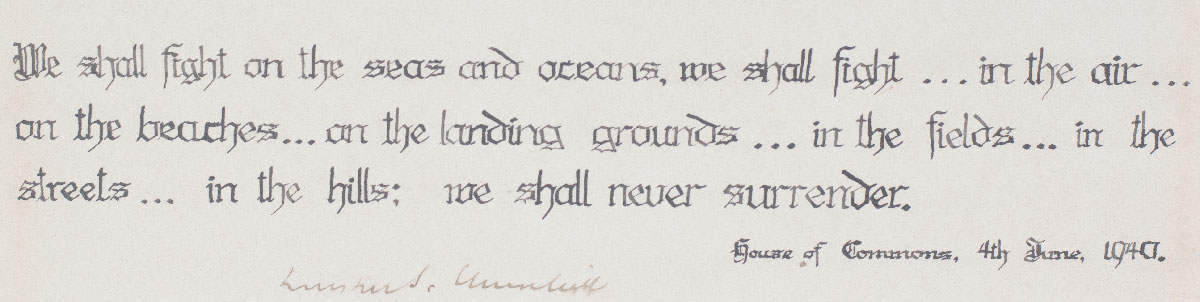 We shall fight on the seas and oceans, we shall fight ... in the air ...
on the beaches... on the landing grounds ... in the fields... in the
streets ... in the hills; we shall never surrender.
House of Commons, 4th June, 1940.
Winston S. Churchill